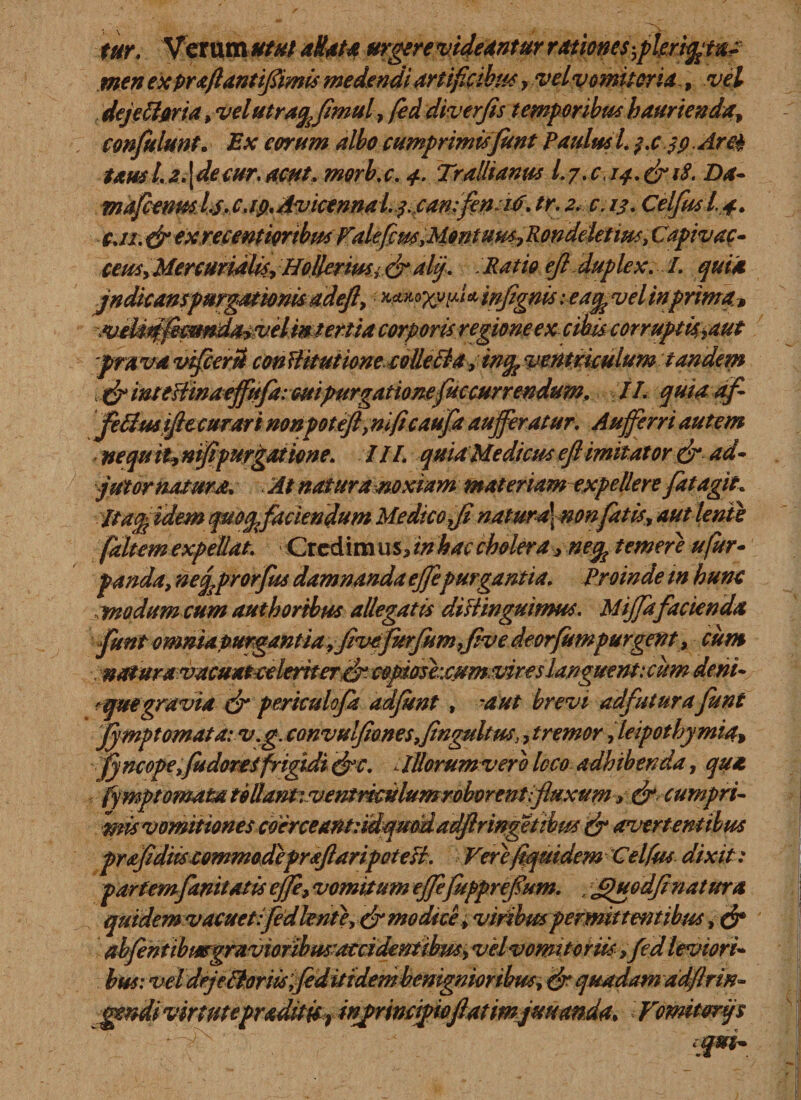 tur. Verum utut allata urgere videantur rationes; pleriq; ta-
men ex præstantißimis medendi artificibus, vel vomitoria, vel
dejectoria, vel utraq; simul, sed diversis temporibus haurienda,
consulunt. Ex eorum albo cumprimis sunt Paulus l. 3. c 39. Areæ
tæus l. 2. de cur. acut. morb. c. 4. Trallianus l. 7. c. 14. & 18. Da-
mascenus l. s. c. 19. Avicenna l. 3. can: fen. 16. tr. 2. c. 13. Celsus l. 4.
c. 11. & ex recentioribus Valescus, Montuus, Rondeletius, Capivac-
ceus, Mercurialis, Hollerius, & alij. Ratio est duplex. I. quia
jndicans purgationis adest, κακοχυμία insignis: eaq; vel in prima,
vel in secunda, vel in tertia corporis regione ex cibis corruptis, aut
prava viscerũ constitutione collecta, inq; ventriculum tandem
& intestina effusa: cui purgatione succurrendum. II. quia af-
fectus iste curari non potest, nisi causa aufferatur. Aufferri autem
nequit, nisi purgatione. III. quia Medicus est imitator & ad-
jutor naturæ. At natura noxiam materiam expellere satagit.
Itaq; idem quoq; faciendum Medico, si natura non satis, aut lentè
saltem expellat. Credimus, in hac cholera, neq; temerè usur-
panda, neq; prorsus damnanda esse purgantia. Proinde in hunc
modum cum authoribus allegatis distinguimus. Missa facienda
sunt omnia purgantia, sive sursum, sive deorsum purgent, cùm
natura vacuat celeriter & copiosè: cum vires languent: cùm deni-
que gravia & periculosa adsunt, aut brevi adfutura sunt
symptomata: v. g. convulsiones, singultus, tremor, leipothymia,
syncope, sudores frigidi &c. Illorum verò loco adhibenda, quæ
symptomata tollant: ventriculum roborent: fluxum, & cumpri-
mis vomitiones coërceant: id quod adstringẽtibus & avertentibus
præsidiis commodè præstari potest. Verè siquidem Celsus dixit:
partem sanitatis esse, vomitum esse suppreßum. Quod si natura
quidem vacuet: sed lentè, & modicè, viribus permittentibus, &
absentibus gravioribus accidentibus, vel vomitoriis, sed leviori-
bus: vel dejectoriis, sed itidem benignioribus, & quadam adstrin-
gendi virtute præditis, in principio statim juuanda. Vomitorijs
qui-